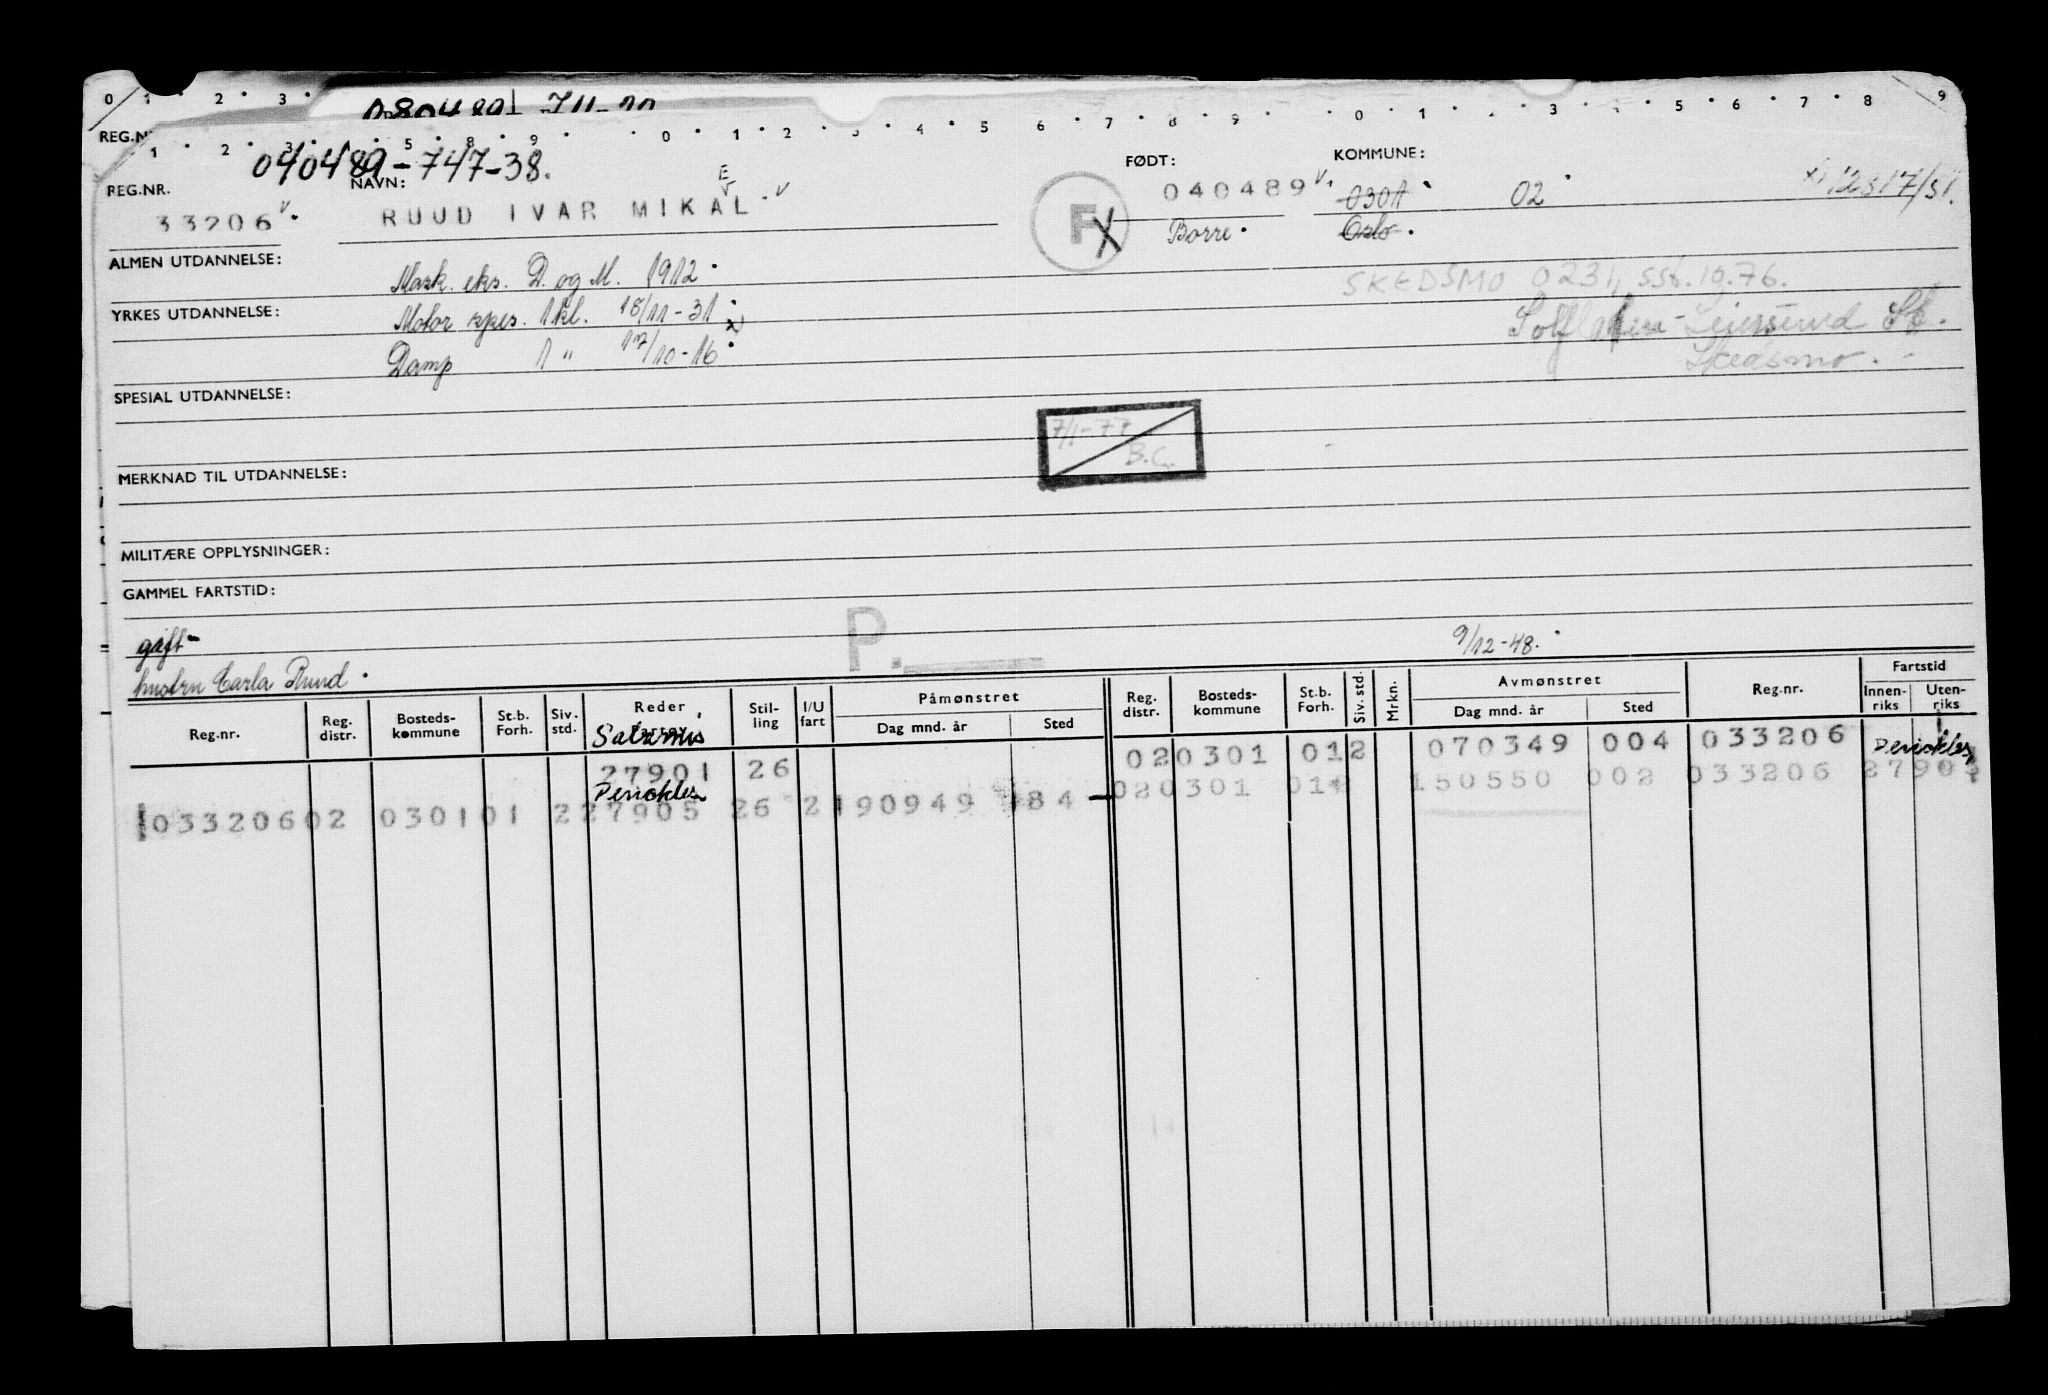 0 1 2 3
080489
REG.N
1 2 3 5 8 9 0 1 2 3 4 5 6 7 8 9 0 1 3 4 5 6 7 8 9
040489-747-38.
REG.NR. NAVN: FØDT: KOMMUNE:
33206 RUUD IVAR MIKAL E F 040489 0301 02 12817/51.
Borre Oslo
ALMEN UTDANNELSE: Mask. eks. D. og M. 1912
SKEDSMO 0231, sst. 10.76.
YRKES UTDANNELSE: Motor spes. 1 kl. 18/11-31
Damp 1 " 17/10-16
Skedsmo.
SPESIAL UTDANNELSE:
7/1-77
B.C.
MERKNAD TIL UTDANNELSE:
MILITÆRE OPPLYSNINGER:
GAMMEL FARTSTID:
gift P. 9/12-48.
hustru Carla Ruud
Reg.nr. Reg. distr. Bosteds- kommune St.b. Forh. Siv. std. Reder Stil- ling I/U fart Påmønstret Dag mnd. år Sted Reg. distr. Bosteds- kommune St.b. Forh. Siv. std. Mrkn. Avmønstret Dag mnd. år Sted Reg.nr. Fartstid Innen- riks Uten- riks
Salamis
27901 26 020301 012 070349 004 033206 Perikles
Perikles 020301 01 150550 002 033206 27905
033206 02 0301 01 2 27905 26 2 190949 184